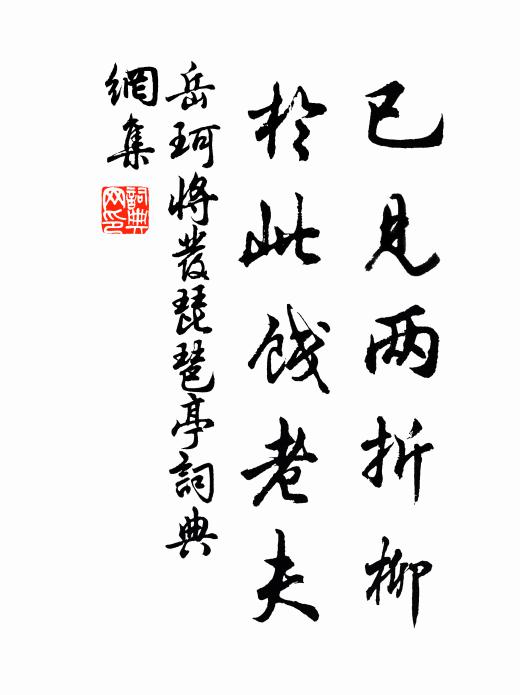 已見兩折柳
於此餞老夫
岳珂將發琵琶亭詞典
網集
詞典網印